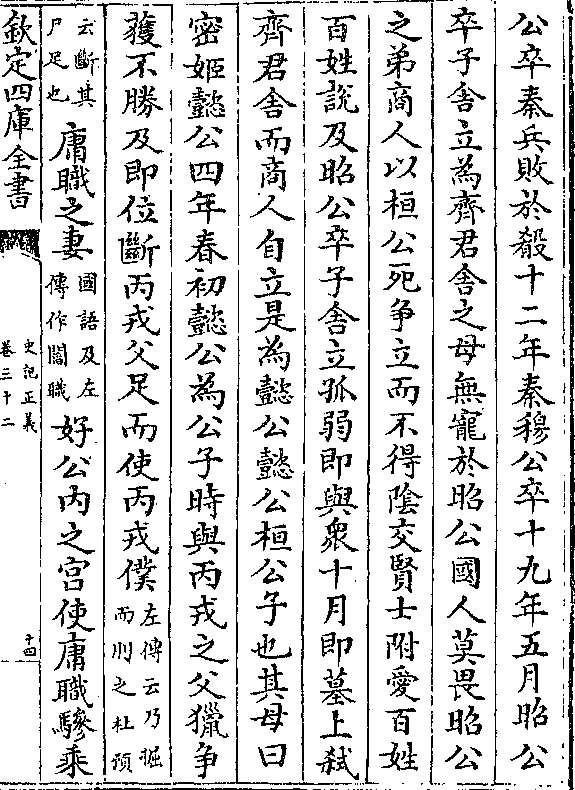 公卒秦兵敗於殽十二年秦穆公卒十九年五月昭公
卒子舎立為齊君舎之母無寵於昭公國人莫畏昭公
之弟商人以桓公死争立而不得陰交賢士附愛百姓
百姓説及昭公卒子舎立孤弱即與衆十月即墓上弑
齊君舎而商人自立是為懿公懿公桓公子也其母曰
密姬懿公四年春初懿公為公子時與丙戎之父獵争
獲不勝及即位斷丙戎父足而使丙戎僕左傳云乃掘
而刖之杜預
云斷其
尸足也
庸職之妻國語及左
傳作閻職
好公内之宮使庸職驂乘
欽定四庫全書
史記正義
卷三十二
十四